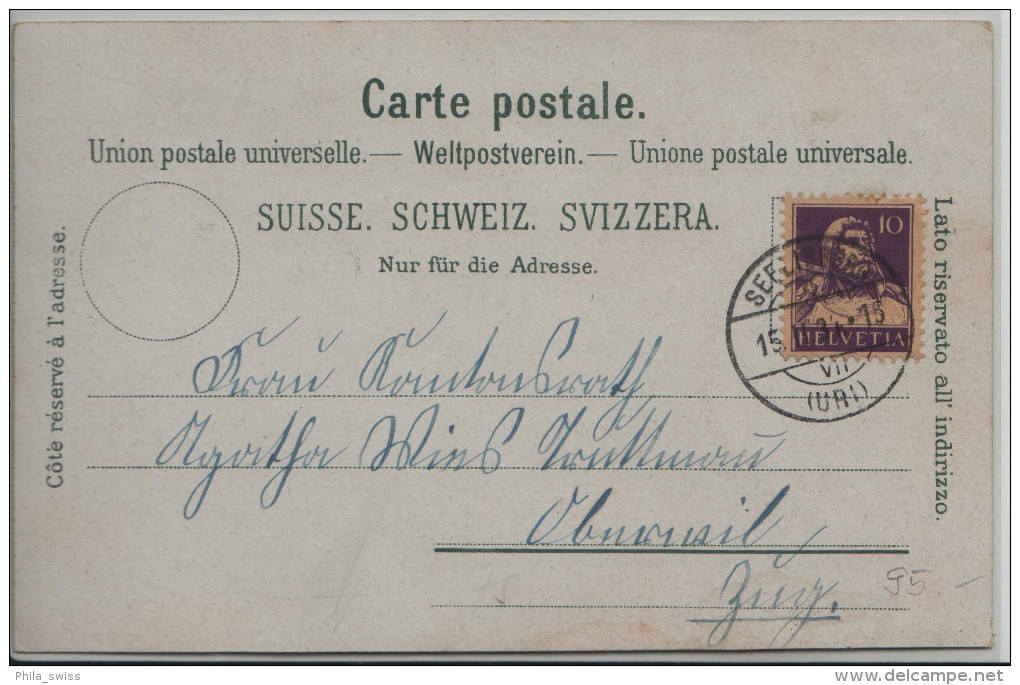 Carte postale.
Union postale universelle. — Weltpostverein. — Unione postale universale.
SUISSE. SCHWEIZ. SVIZZERA.
Nur für die Adresse.
Côté réservé à l'adresse.
Lato riservato all' indirizzo.
10
HELVETIA
SEELISBERG
VII
(URI)
Frau Kantonsrath
Agatha Wies Truttmau
Oberwil
Zug.
95.-
Phila_swiss
delcampe.net